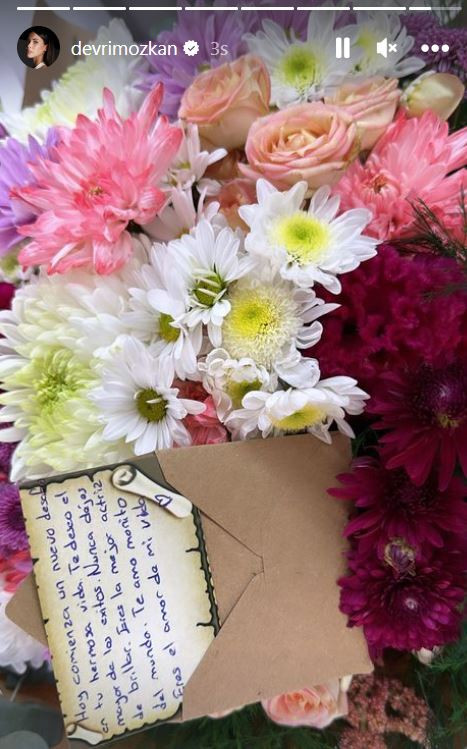 devrimozkan 3s
Hoy comienza un nuevo desa
en tu hermosa vida. Te deseo el
mayor de los exitos. Nunca dejes
de brillar. Eres la mejor actriz
del mundo. Te amo moñito
Eres el amor de mi vida